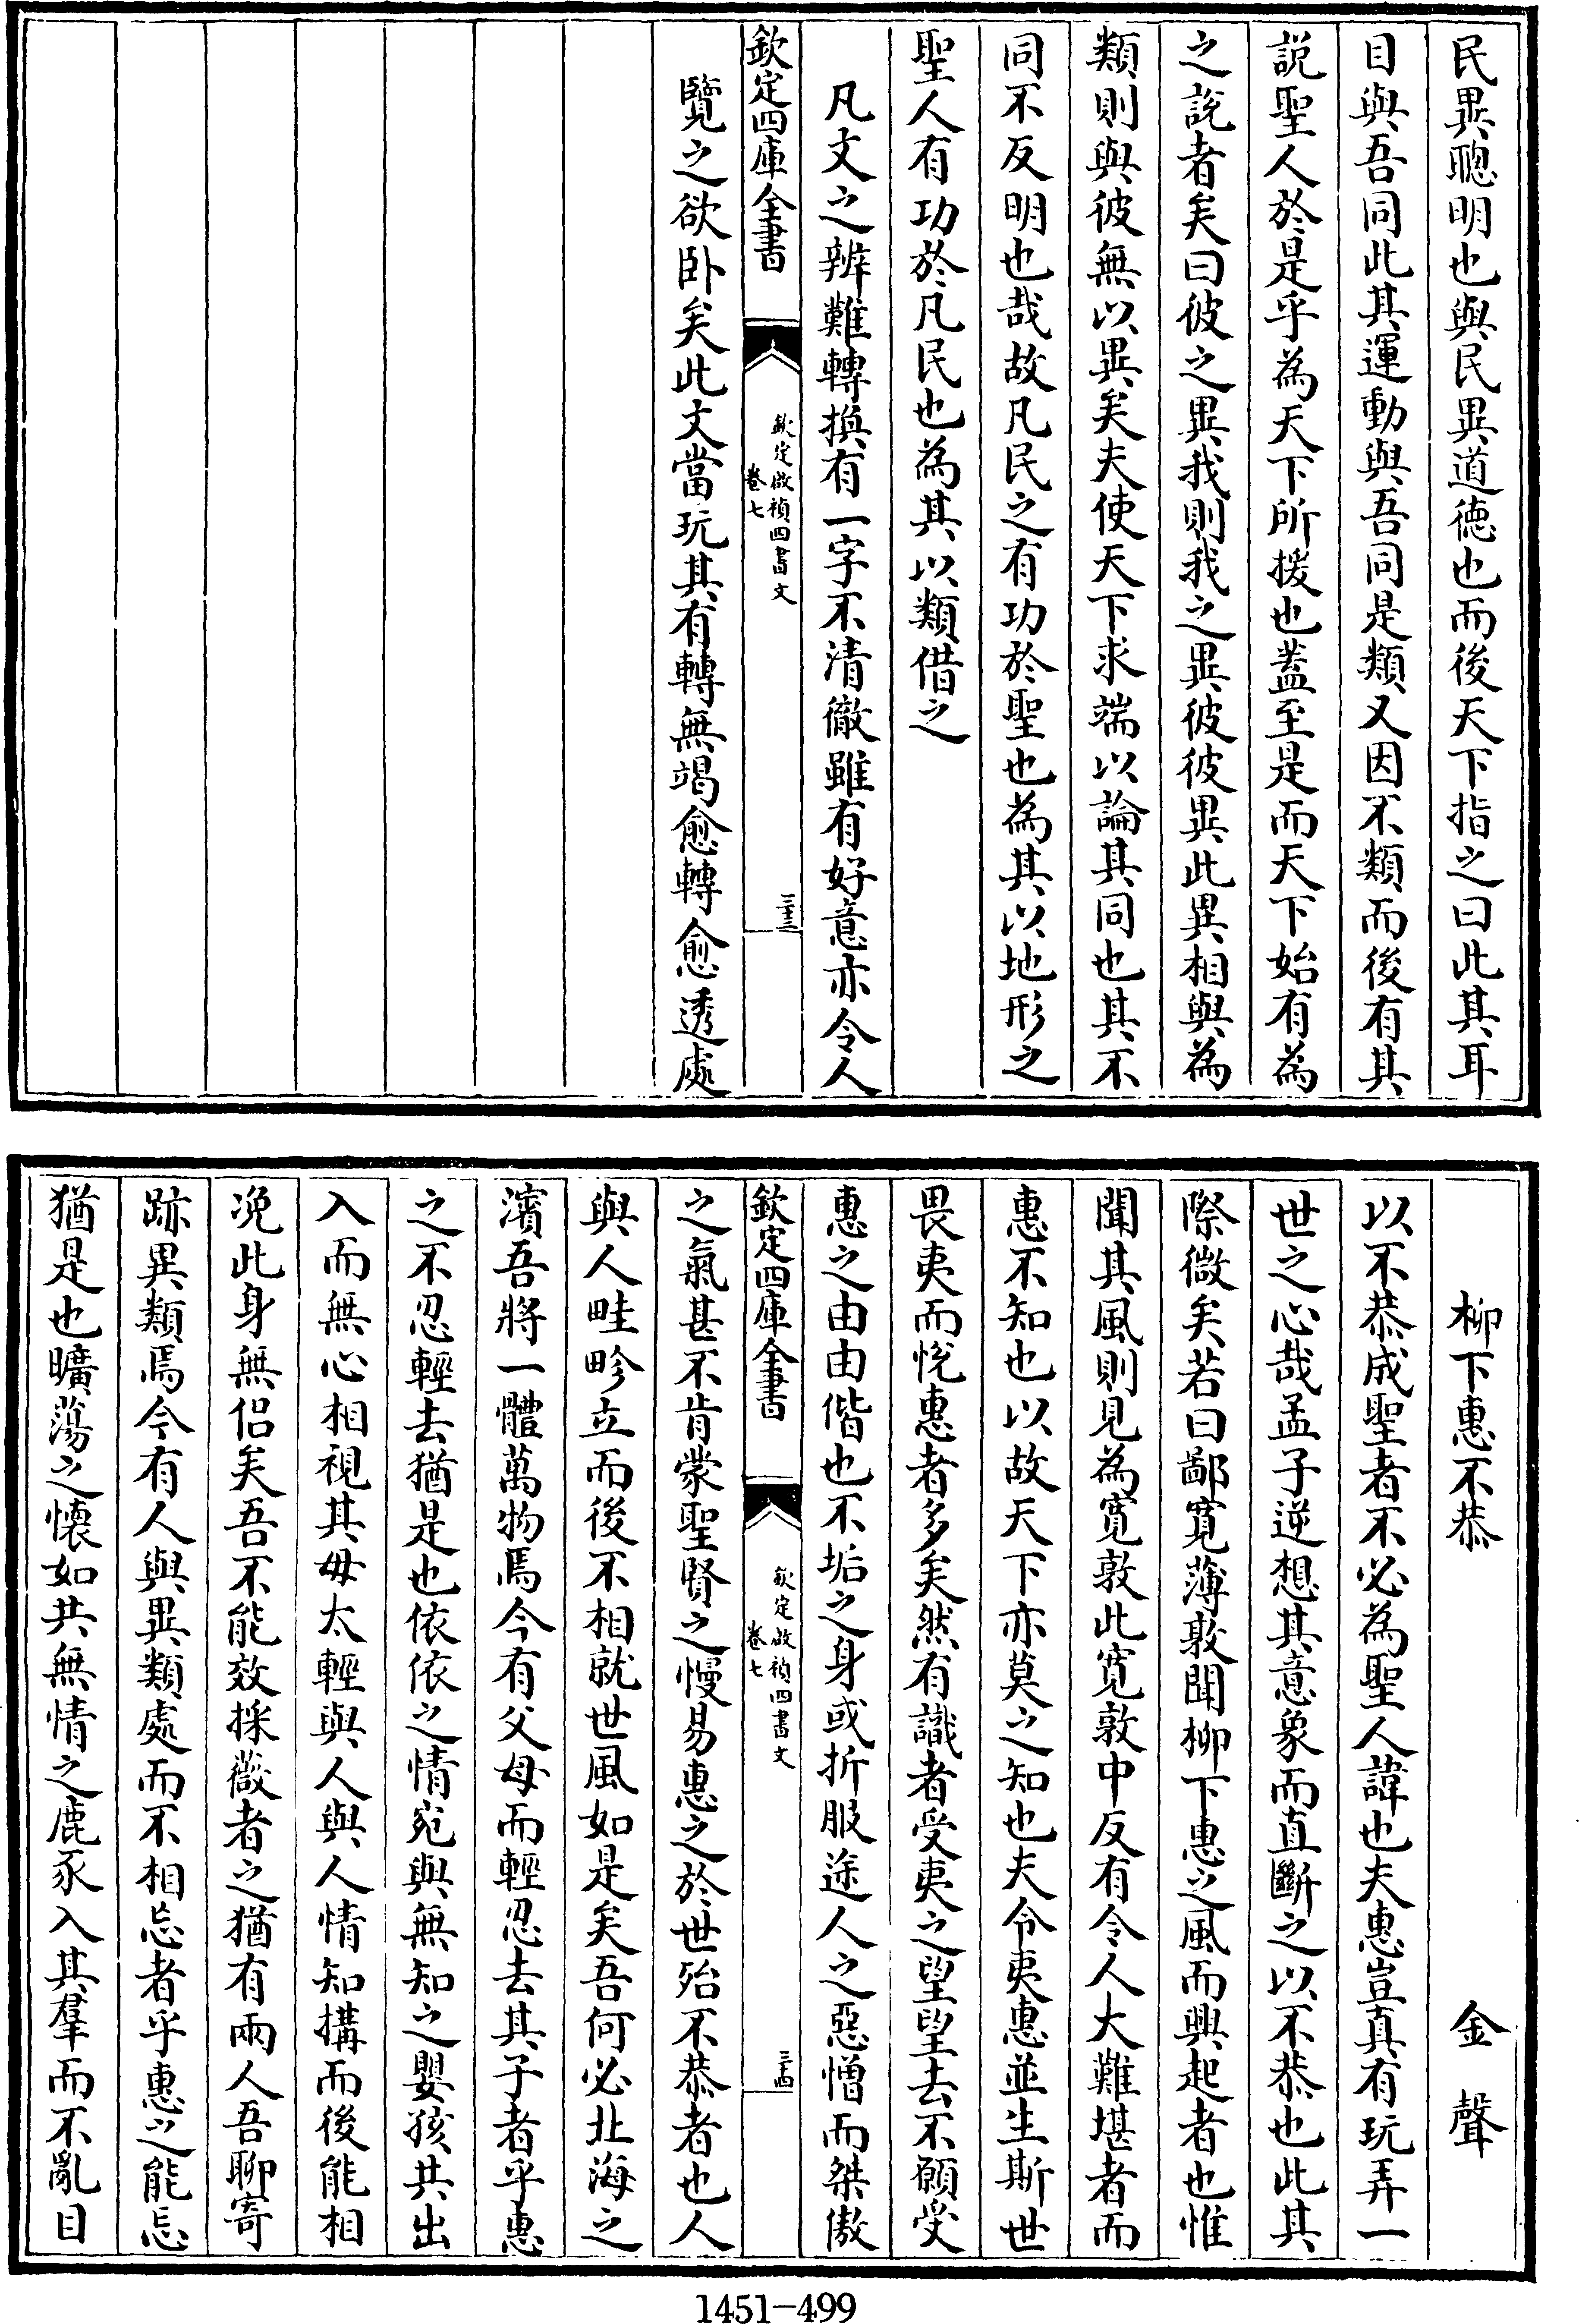 民異聰明也與民異道徳也而後天下指之曰此其耳
目與吾同此其運動與吾同是類又因不類而後有其
説聖人於是乎為天下所援也葢至是而天下始有為
之説者矣曰彼之異我則我之異彼彼異此異相與為
類則與彼無以異矣夫使天下求端以論其同也其不
同不反明也哉故凡民之有功於聖也為其以地形之
聖人有功於凡民也為其以類借之
凡文之辨難轉換有一字不清徹雖有好意亦令人
欽定四庫全書
欽定啟禎四書文
卷七
三十三
覽之欲卧矣此文當玩其有轉無竭愈轉愈透處
柳下惠不恭 金聲
以不恭成聖者不必為聖人諱也夫惠豈真有玩弄一
世之心哉孟子逆想其意象而直斷之以不恭也此其
際微矣若曰鄙寛薄敦聞柳下惠之風而興起者也惟
聞其風則見為寛敦此寛敦中反有令人大難堪者而
惠不知也以故天下亦莫之知也夫令夷惠並生斯世
畏夷而悅惠者多矣然有識者受夷之望望去不願受
惠之由由偕也不垢之身或折服途人之惡憎而桀傲
欽定四庫全書
欽定啟禎四書文
卷七
三十四
之氣甚不肯蒙聖賢之慢易惠之於世殆不恭者也人
與人畦畛立而後不相就世風如是矣吾何必北海之
濱吾將一體萬物焉今有父母而輕忍去其子者乎惠
之不忍輕去猶是也依依之情宛與無知之嬰孩共出
入而無心相視其毋太輕與人與人情知搆而後能相
浼此身無侶矣吾不能效採薇者之猶有兩人吾聊寄
跡異類焉今有人與異類處而不相忘者乎惠之能忘
猶是也曠蕩之懐如共無情之鹿豕入其羣而不亂目
1451-499